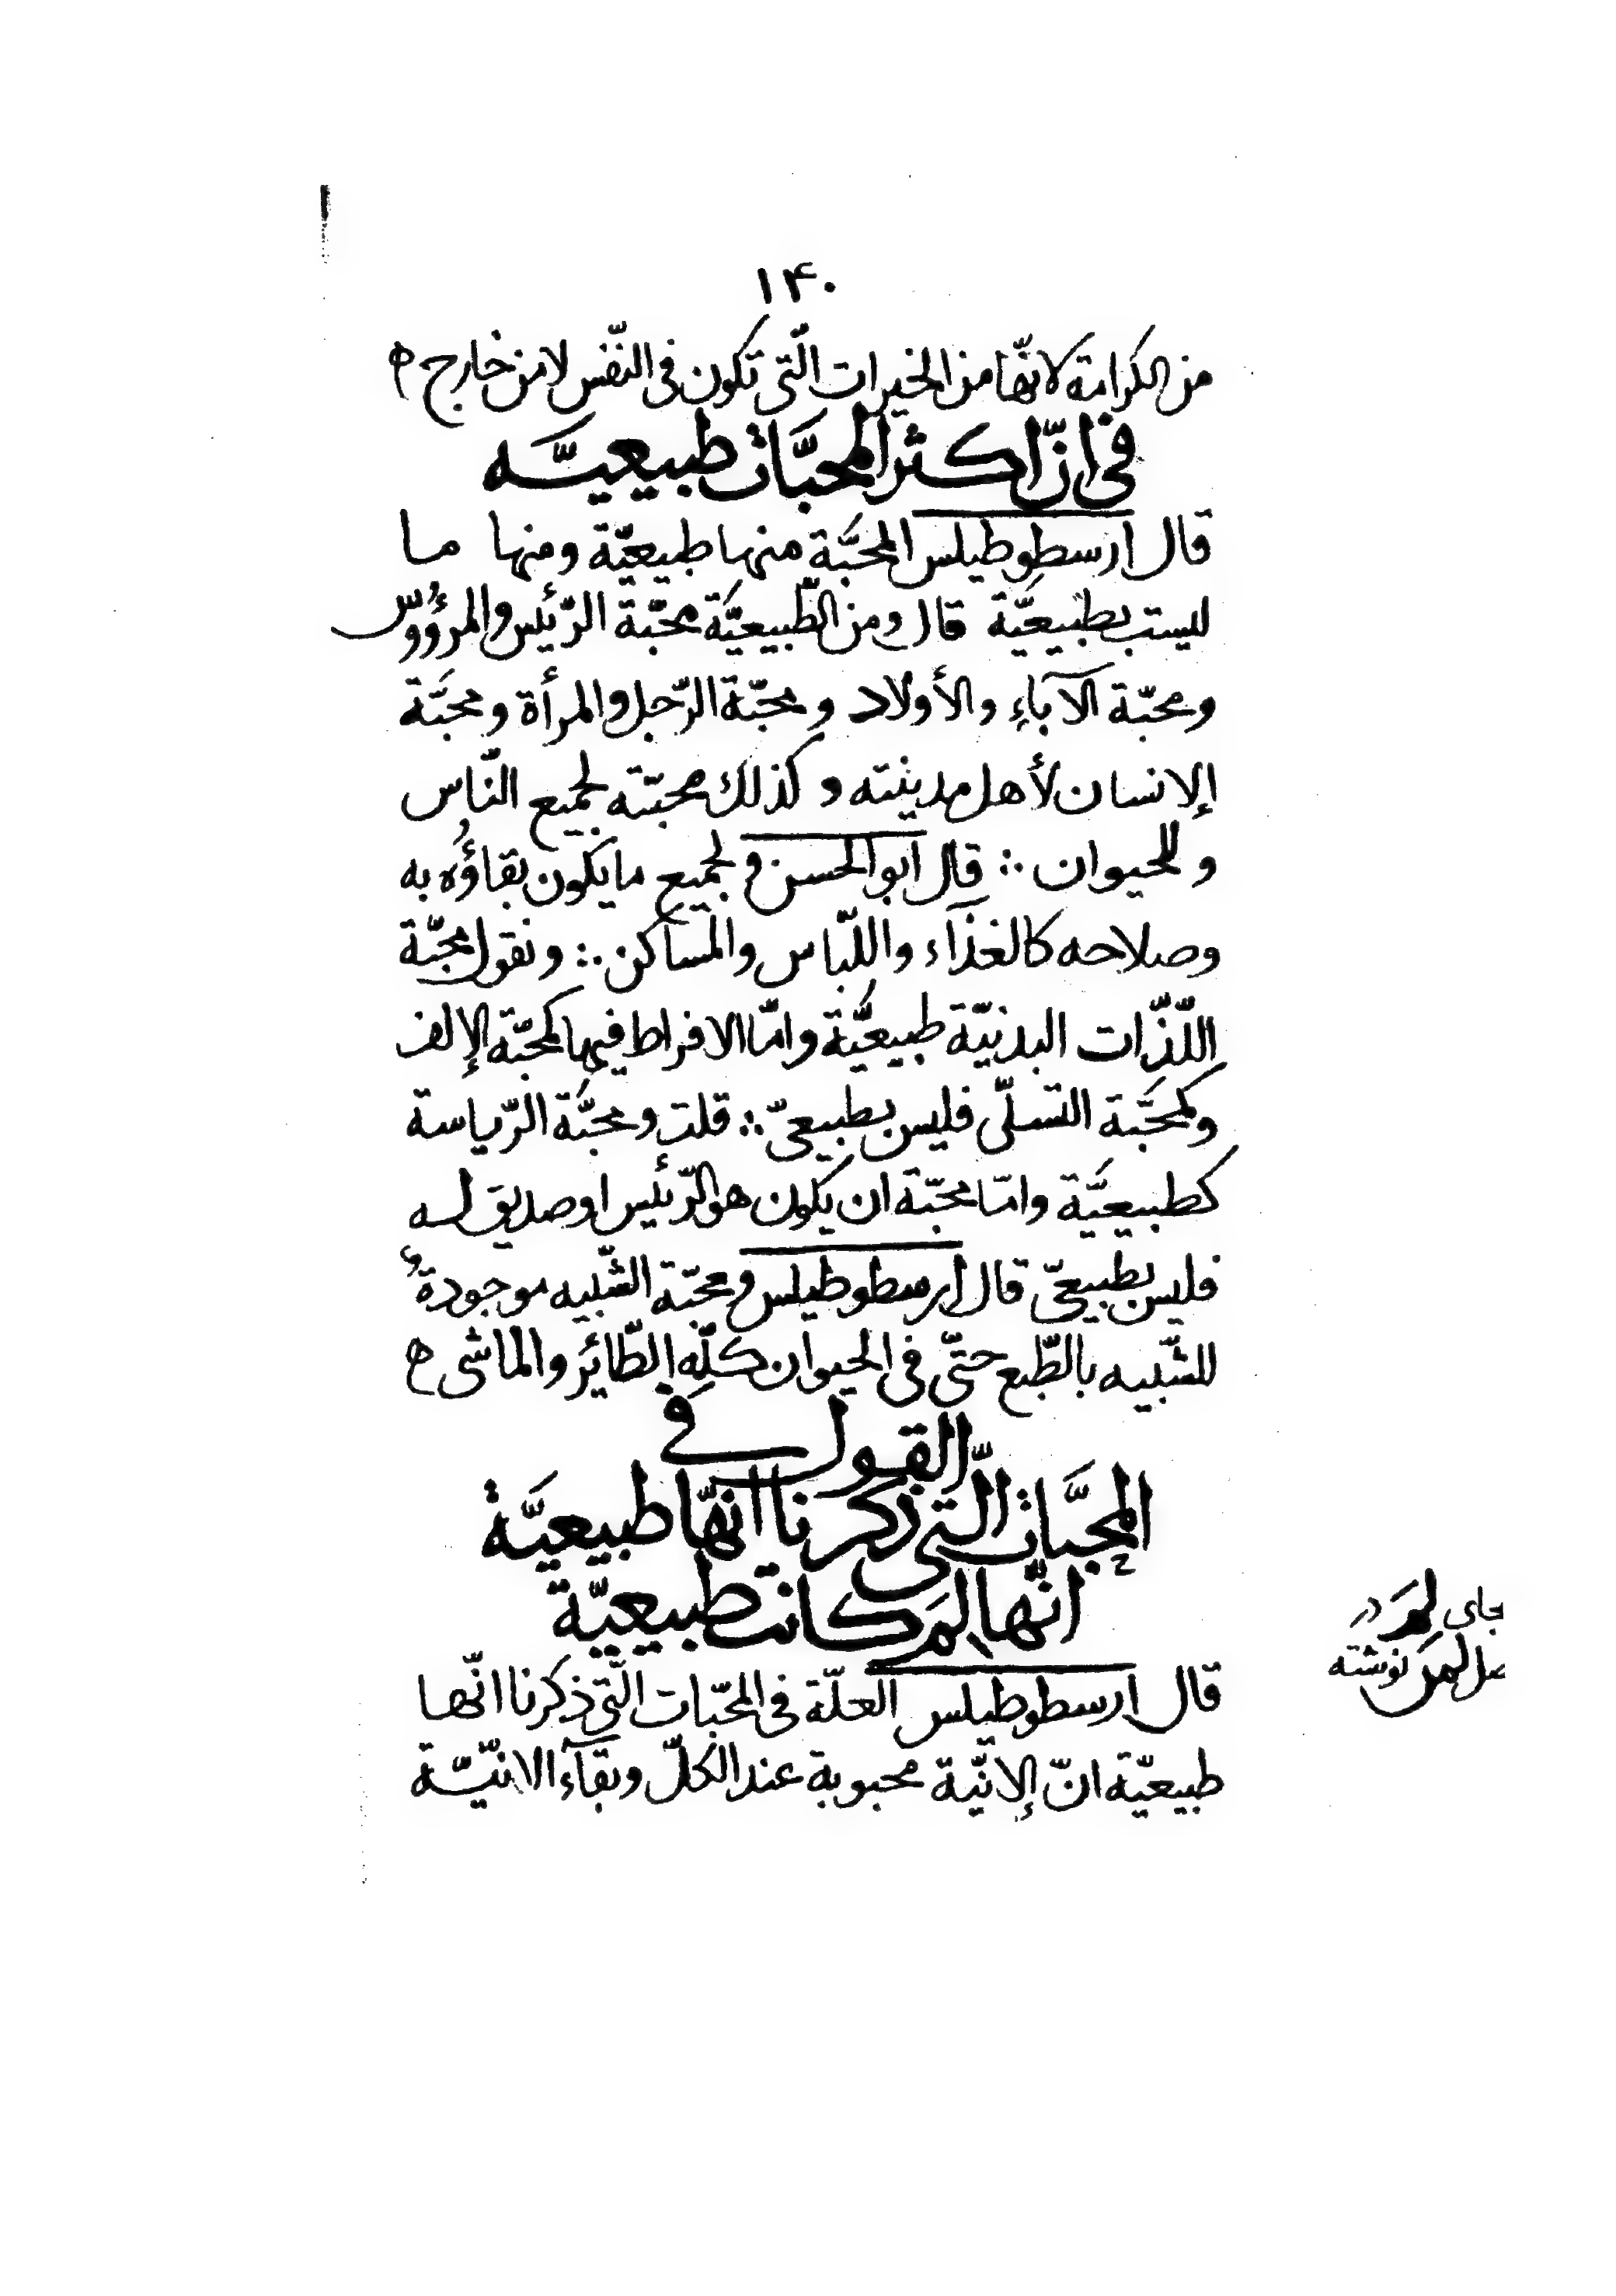 ۱۴۰
من الكرامة لانّها من الخيرات الّتي تكون فى النّفس لا من خارج ه
فى انّ اكثر المحبَّات طبيعيَّه
قال ارسطوطيلس المحبَّة منها طبيعيّة ومنها ما
ليست بطبيعيَّة قال ومن الطّبيعيَّة محبّة الرّئيس والمرؤوس
ومحبّة الآباءِ والأولاد ومحبّة الرّجل والمرأة ومحبَّة
الإنسان لأهل مدينته وكذلك محبّته لجميع النّاس
وللحيوان ∴ قال ابو الحسن ولجميع ما يكون بقاؤُه به
وصلاحه كالغذآء واللّباس والمساكن ∴ ونقول محبّة
اللّذّات البدنيّة طبيعيَّة وامّا الافراط فيها كمحبّة الإلف
وكمحبَّة التسلّى فليس بطبيعىّ ∴ قلت ومحبَّة الرّياسة
كطبيعيَّة وامّا محبّة ان يكون هو الرّئيس او صديق له
فليس بطبيعىّ قال ارسطوطيلس ومحبّة الشّبيه موجودةٌ
للشّبيه بالطّبع حتّى فى الحيوان كلّه الطّائر والماشى ه
القول فى
المحبَّات الّتى ذكرنا انّها طبيعيَّة
انّها لِمَ كانت طبيعيّة
قال ارسطوطيلس العلّة فى المحبّات الّتى ذكرنا انّها
طبيعيّة انّ الإنّيّة محبوبة عند الكلّ وبقآء الانّيّة
بجاى لِمَ در
اصل لمن نوشته